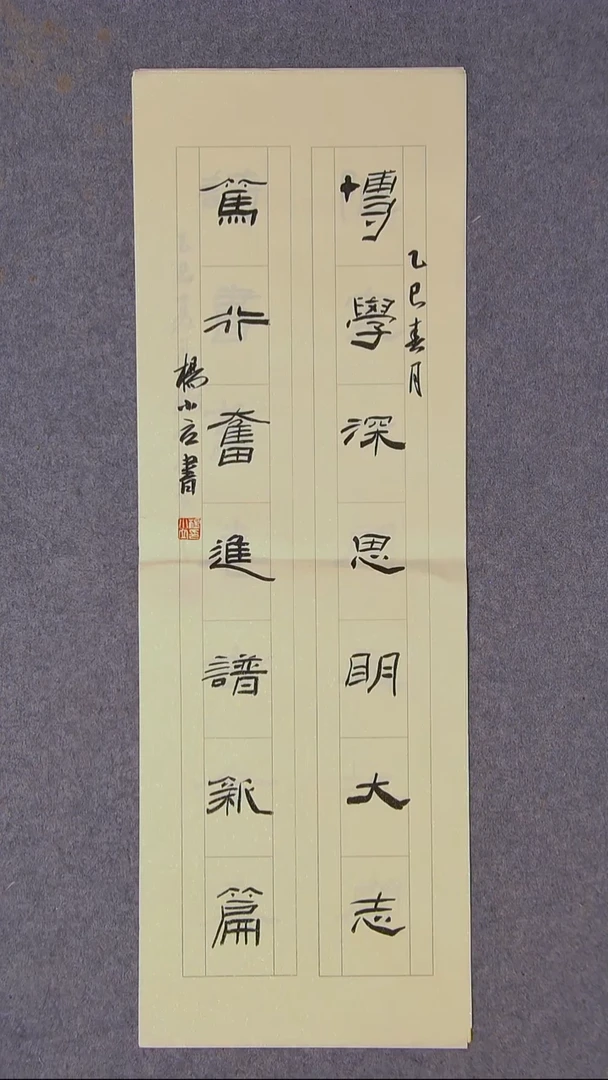 乙巳春月
博學深思明大志
篤行奮進譜新篇
楊小云書